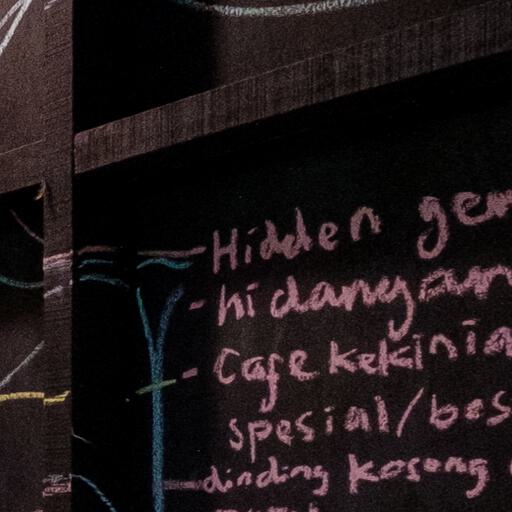 - Hidden ge
- hidangan
- Cafe kekinia
spesial/bos
- dinding kosong